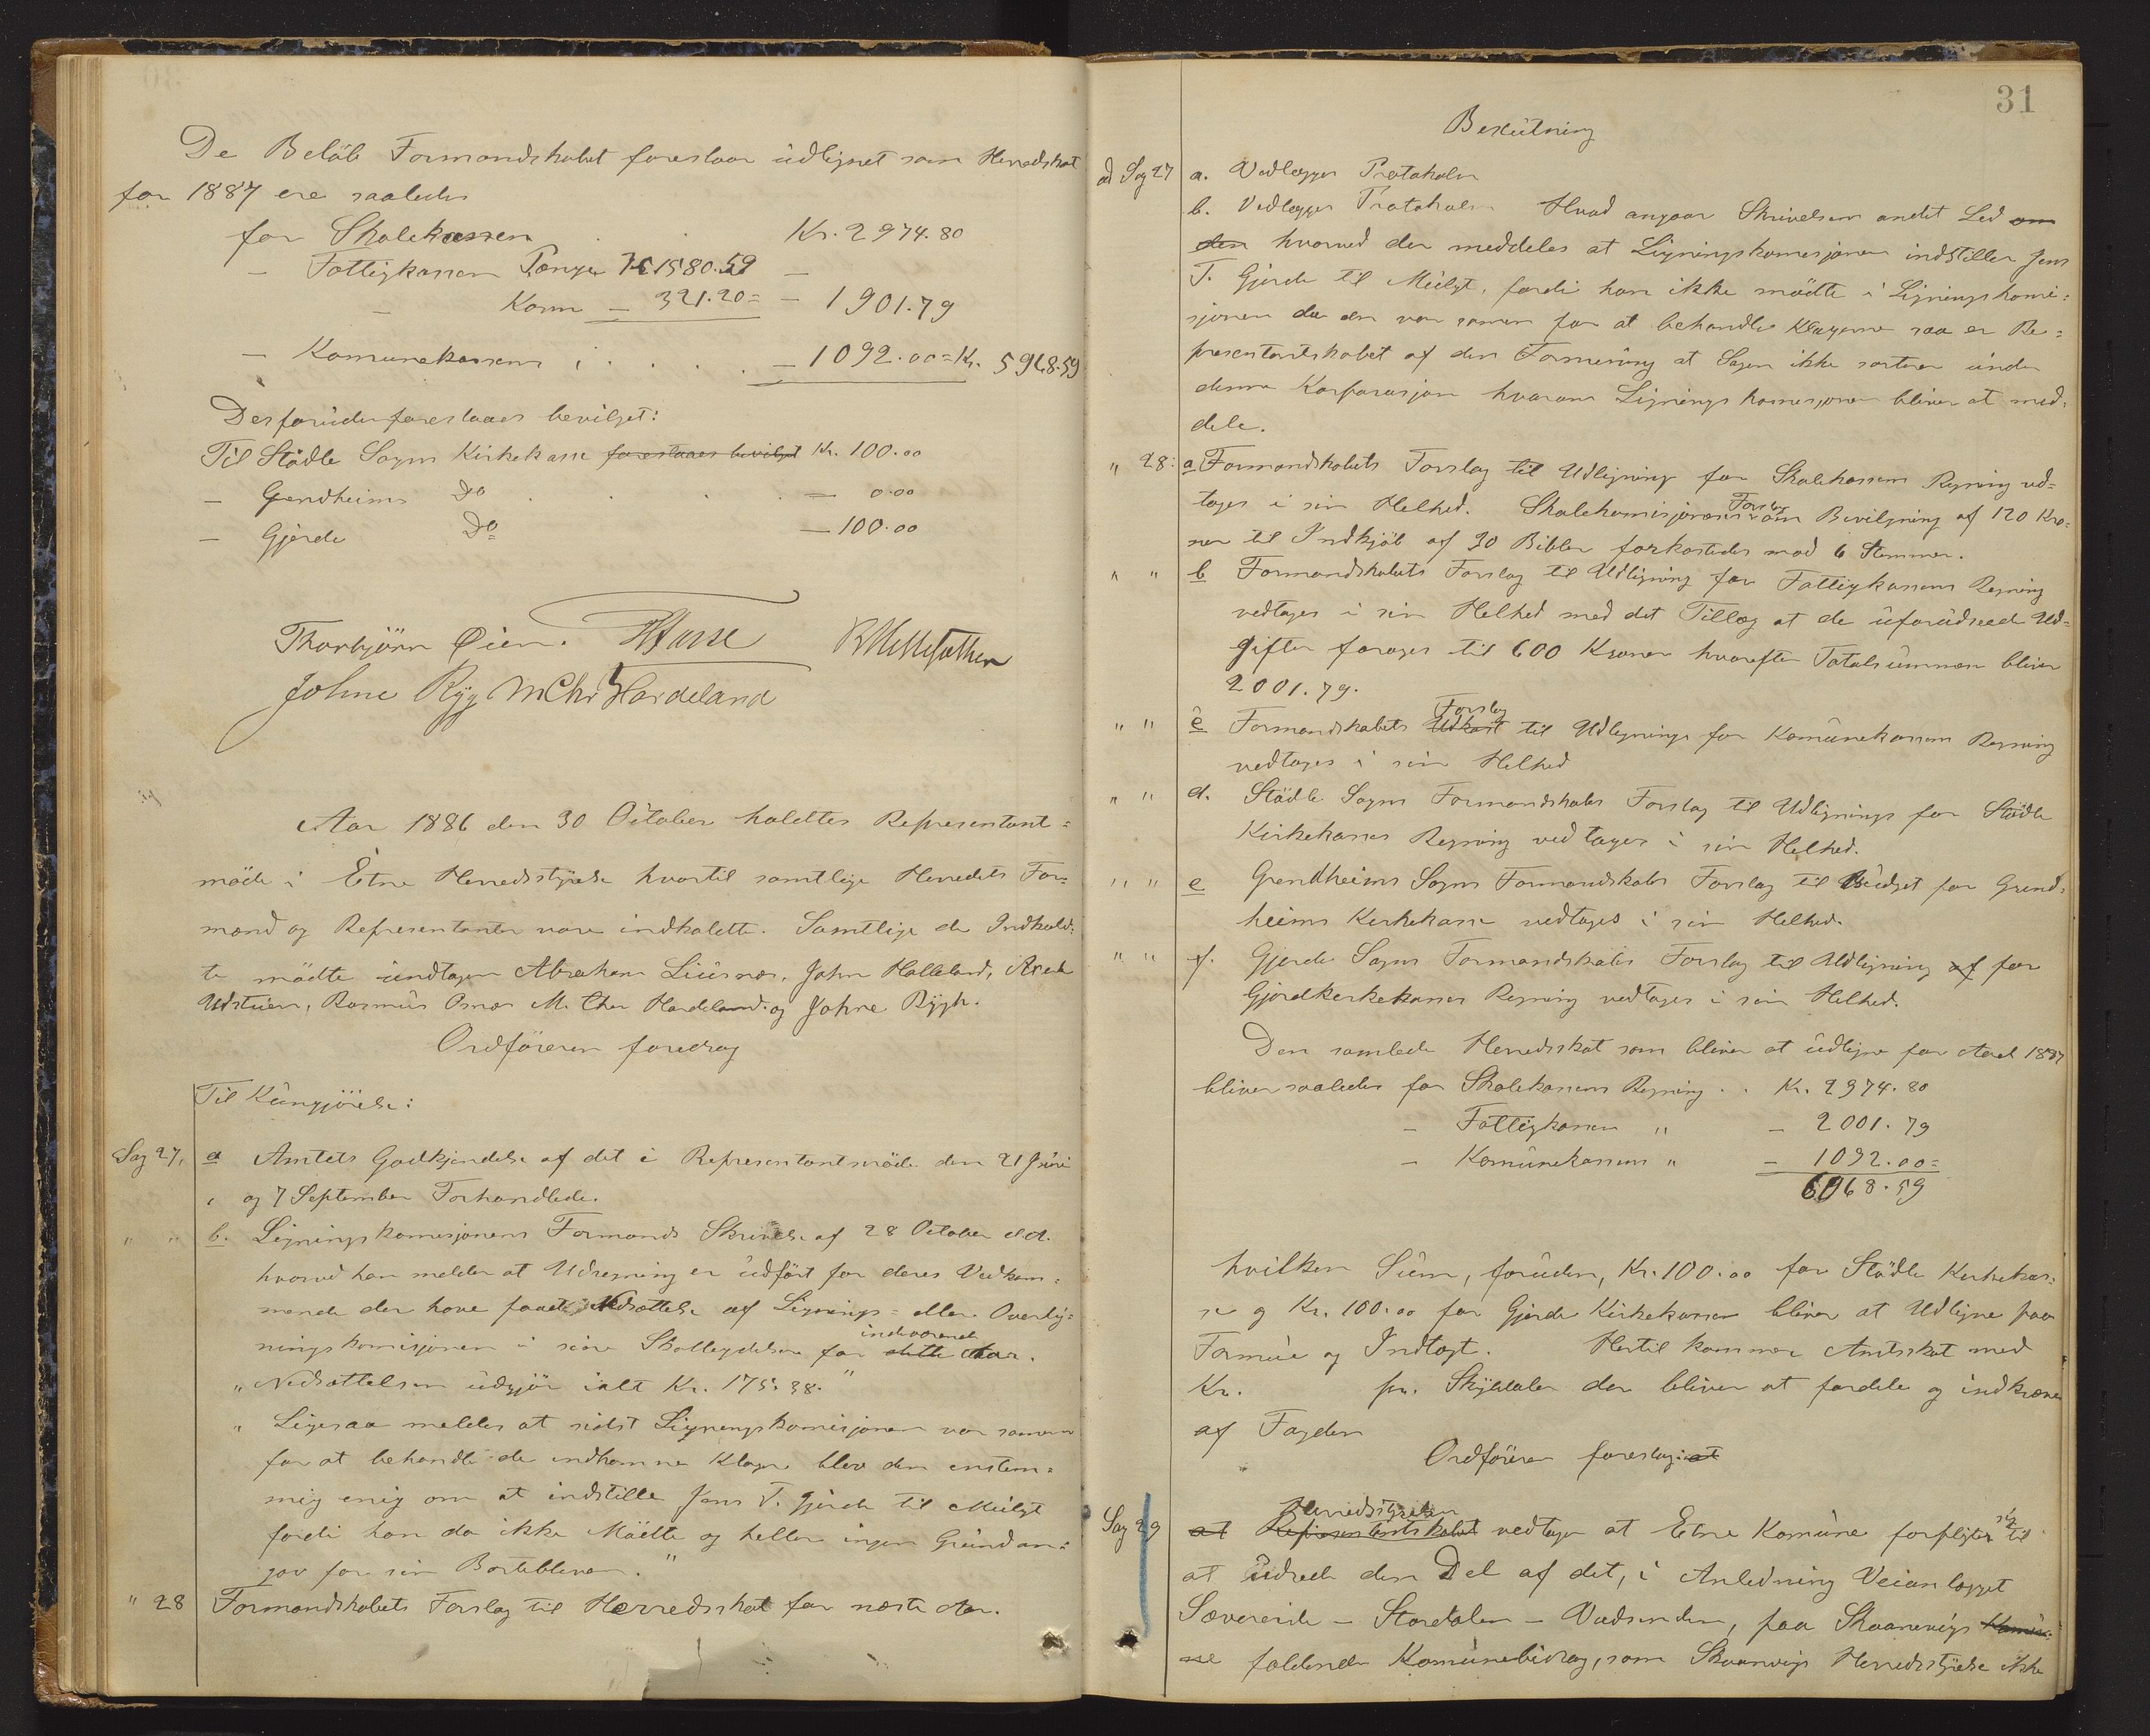 De Beløb Formandskabet foreslaar udlignet som Herredskat
for 1887 ere saaledes
for Skolekassen Kr. 2974.80
– Fattigkassen Penge Kr 1580.59 –
– Korn – 321.20 = – 1901.79
– Komunekassens – 1092.00 = Kr. 5968.59
Desforuden foreslaaes bevilget:
Til Stødle Sogns Kirkekasse foreslaaes bevilget Kr. 100.00
– Grendheims Do – 0.00
– Gjerde Do – 100.00
Thorbjörn Øien.
Johne Ryg M Chr Hardeland
Aar 1886 den 30 October holdtes Representant=
møde i Etne Herredsstyrelse hvortil samtlige Herredets For=
mænd og Representanter vare indkaldte. Samtlige de Indkald=
te mødte undtagen Abraham Liusnes, John Halleland,
Udstuen, Rasmus Omar M. Chr Hardeland og Johne Rygh.
Ordføreren foredrog
Til Kungjørelse:
Sag 27, a Amtets Godkjendelse af det i Representantmøde den 21 Juni
og 7 September Forhandlede.
" " b. Ligningskomisjonens Formands Skrivelse af 28 October d.A.
hvorved han melder at Udregning er udført for deres Vedkom=
mende der have faaet Nedsættelse af Lignings= eller Overlig=
ningskomisjonen i sine Skatteydelser for dette indeværende Aar.
" Nedsættelsen udgjør ialt Kr. 175.38."
" Ligesaa meldes at sidst Ligningskomisjonen var sammen
for at behandle de indkomne Klager blev den enstem=
mig enig om at indstille Jens T. Gjerde til Mulgt
fordi han da ikke Mødte og heller ingen Grund an=
gav for sin Bortebliven."
" 28 Formandskabets Forslag til Herredsskat for næste Aar.
31
Beslutning
ad Sag 27 a. Vedlægges Protokolen
b. Vedlægges Protokolen Hvad angaar Skrivelsens andet Led om
den hvorved der meddeles at Ligningskomisjonen indstiller Jens
T. Gjerde til Mulgt, fordi han ikke mødte i Ligningskomi=
sjonen da den var samen for at behandle Klagerne saa er Re=
presentantskabet af den Formening at Sagen ikke sorterer under
denne Korporasjon hvorom Ligningskomisjonen bliver at med=
dele.
" 28: a Formandskabets Forslag til Udligning for Skolekassens Regning ved=
tages i sin Helhed. Skolekomisjonens Forslag om Bevilgning af 120 Kro=
ner til Indkjøb af 30 Bibler forkastedes mod 6 Stemmer.
" " b Formandskabets Forslag til Udligning for Fattigkassens Regning
vedtages i sin Helhed med det Tillæg at de uforudseede Ud=
gifter forøges til 600 Kroner hvorefter Totalsummen bliver
2001.79.
" " c Formandskabets Udkast Forslag til Udlignings for Komunekassens Regning
vedtages i sin Helhed
" " d. Stødle Sogns Formandskabs Forslag til Udlignings for Stødle
Kirkekasses Regning vedtages i sin Helhed.
" " e Grendheims Sogns Formandskabs Forslag til Budget for Grend=
heims Kirkekasse vedtages i sin Helhed.
" " f. Gjerde Sogns Formandskabs Forslag til Udligning af for
Gjerdkirkekasses Regning vedtages i sin Helhed.
Den samlede Herredsskat som bliver at udligne for Aaret 1887
bliver saaledes for Skolekassens Regning . . Kr. 2974.80
– Fattigkassen " – 2001.79
– Komunekassens " – 1092.00 =
6068.59
hvilken Sum, foruden, Kr. 100.00 for Stødle Kirkekas=
se og Kr. 100.00 for Gjerde Kirkekasse bliver at Udligne paa
Formue og Indtægt. Hertil kommer Amtsskat med
Kr. pr. Skylddaler der bliver at fordele og indkræve
af Fogden
Ordføreren foreslog: at
Sag 29 at Representantskabet Herredsstyrelsen vedtager at Etne Komune forpligter sig til
at udrede den Del af det, i Anledning Veianlægget
Sævereide – Stordalen – Vadsenden, paa Skaanevigs Komu=
ne faldende Komunebidrag, som Skaanevigs Herredsstyrelse ikke